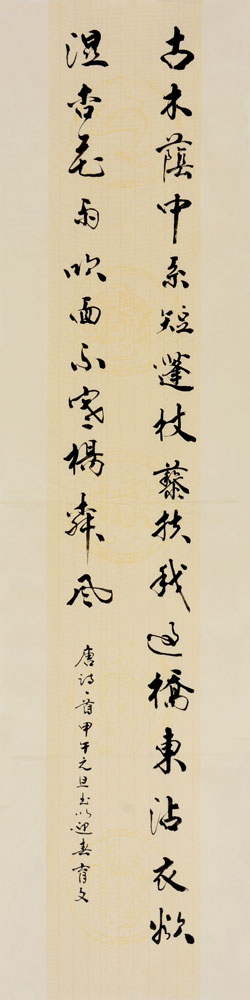 古木蔭中系短蓬杖藜扶我過橋東沾衣欲
濕杏花雨吹面不寒楊柳風
唐詩一首甲午元旦書以迎春育文